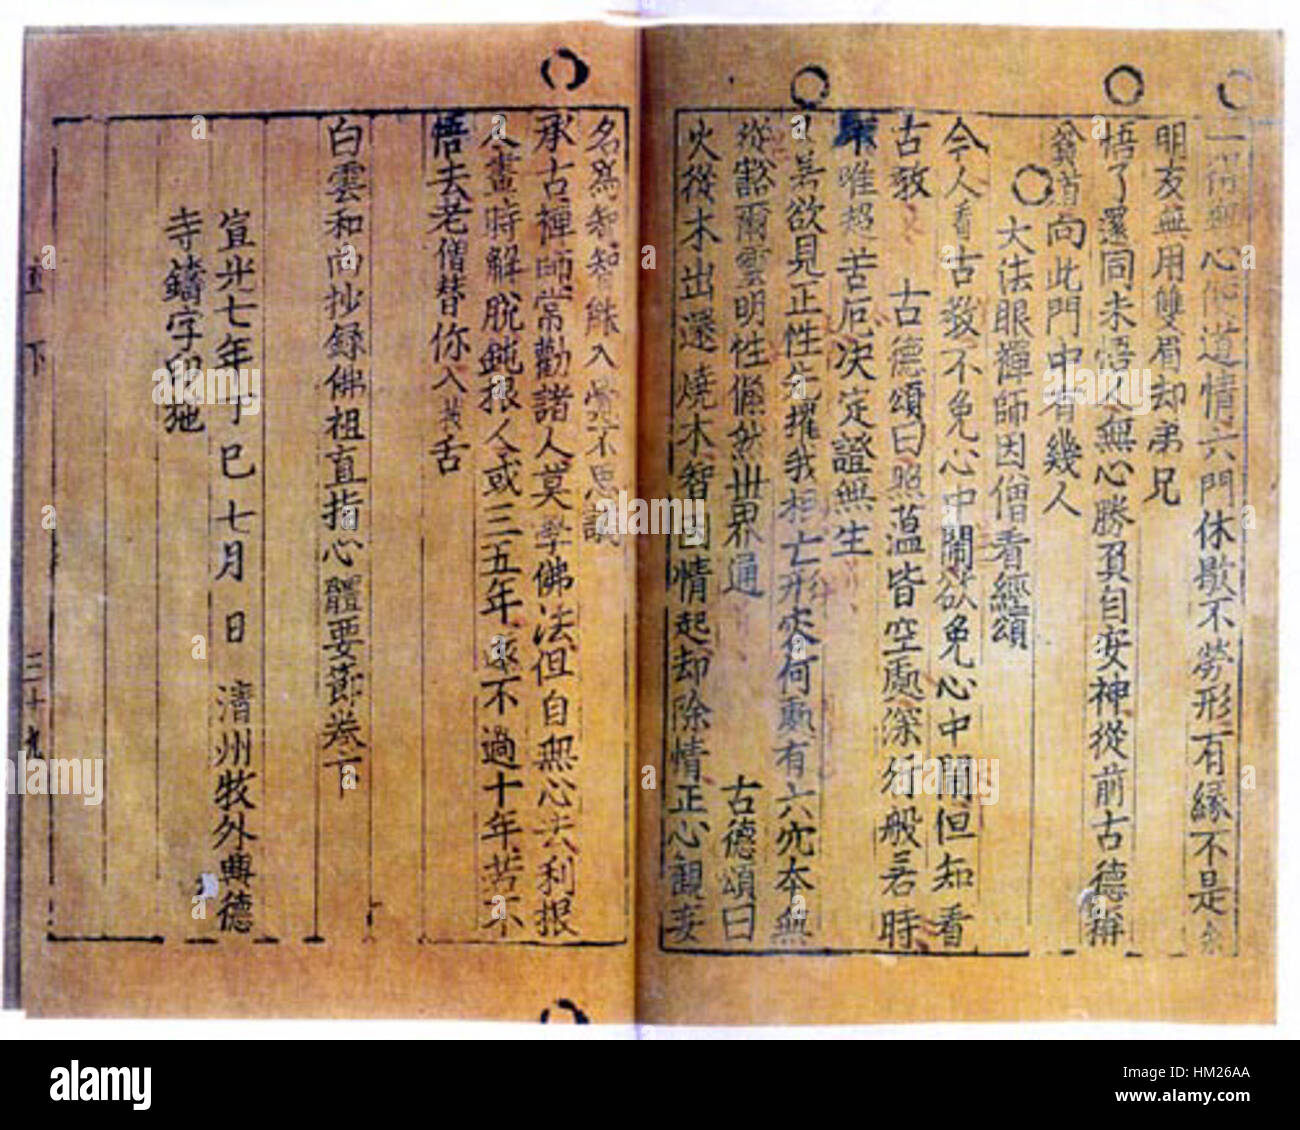 一得無心便道情六門休歇不勞形有緣不是余
明友無用雙眉却弟兄
悟了還同未悟人無心勝負自安神從前古德稱
貧道向此門中有幾人
大法眼禪師因僧看經頌
今人看古教不免心中鬧欲免心中鬧但知看
古教 古德頌曰照蘊皆空處深行般若時
唯超苦厄决定證無生
善欲見正性先撥我相亡形突何勳有六穴本無
從豁爾靈明性翛然世界通 古德頌曰
火從木出還燒木智因情起却除情正心觀妄
名爲智智能入覺不思議
承古禪師常勸諸人莫學佛法但自無心去利根
人晝時解脫鈍根人或三五年遠不過十年若不
悟去老僧替你入拔舌
白雲和尚抄錄佛祖直指心體要節卷下
宣光七年丁巳七月 日 淸州牧外興德
寺鑄字印施
直 下
三十九
a
alamy
alamy
Image ID: HM26AA
www.alamy.com